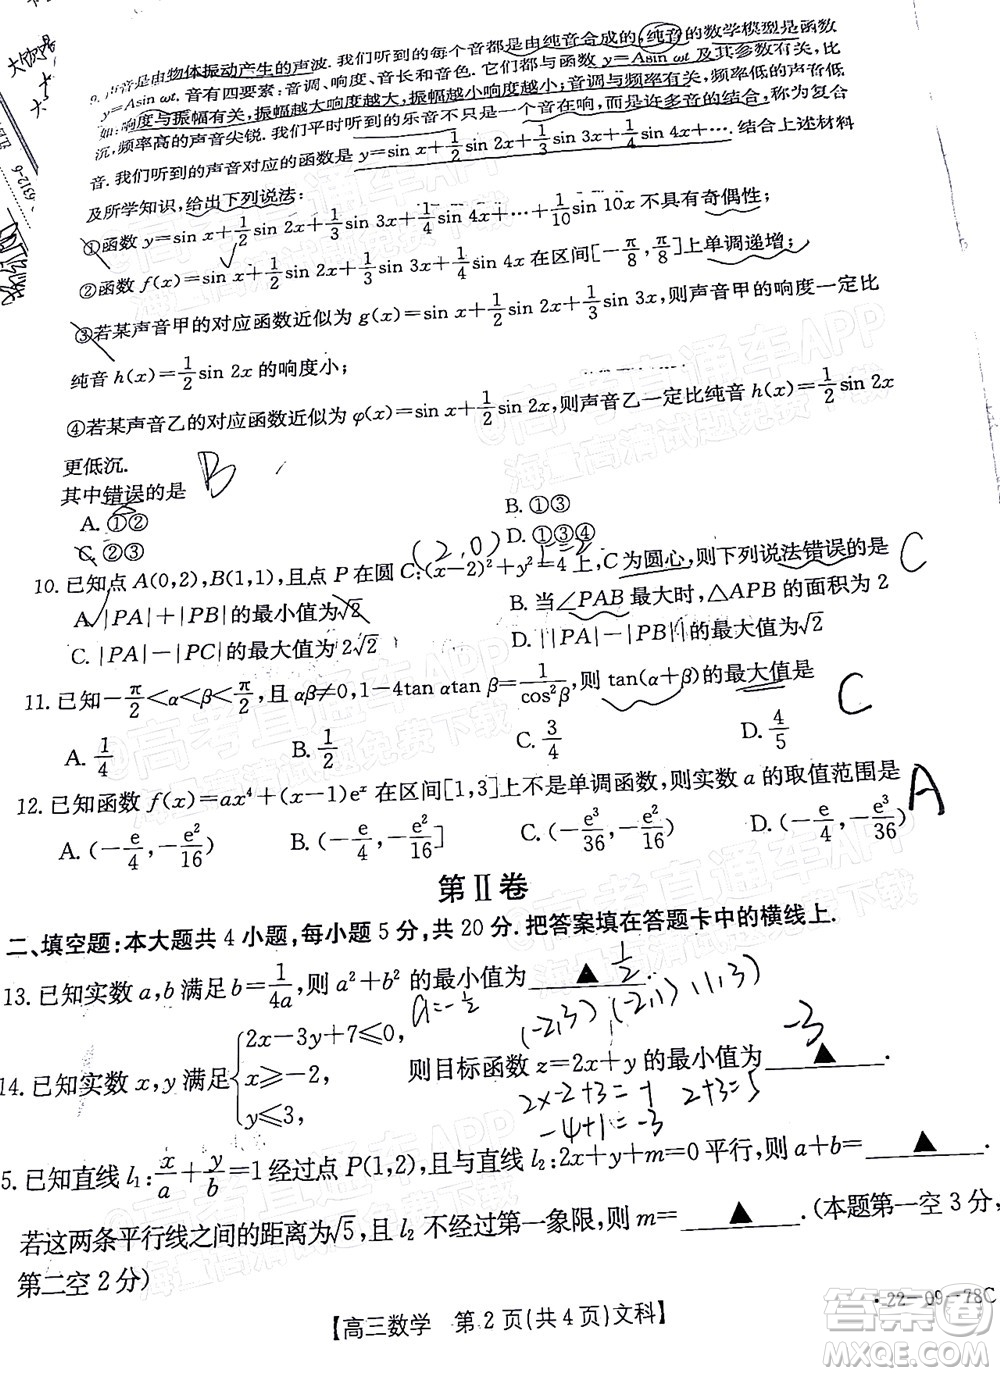 9. 声音是由物体振动产生的声波. 我们听到的每个音都是由纯音合成的, 纯音的数学模型是函数
y=Asin ωt. 音有四要素: 音调、响度、音长和音色. 它们都与函数 y=Asin ωt 及其参数有关, 比
如: 响度与振幅有关, 振幅越大响度越大, 振幅越小响度越小; 音调与频率有关, 频率低的声音低
沉, 频率高的声音尖锐. 我们平时听到的乐音不只是一个音在响, 而是许多音的结合, 称为复合
音. 我们听到的声音对应的函数是 y=sin x+1/2 sin 2x+1/3 sin 3x+…. 结合上述材料
及所学知识, 给出下列说法:
①函数 y=sin x+1/2 sin 2x+1/3 sin 3x+1/4 sin 4x+…+1/10 sin 10x 不具有奇偶性;
②函数 f(x)=sin x+1/2 sin 2x+1/3 sin 3x+1/4 sin 4x 在区间[-π/8, π/8]上单调递增;
③若某声音甲的对应函数近似为 g(x)=sin x+1/2 sin 2x+1/3 sin 3x, 则声音甲的响度一定比
纯音 h(x)=1/2 sin 2x 的响度小;
④若某声音乙的对应函数近似为 φ(x)=sin x+1/2 sin 2x, 则声音乙一定比纯音 h(x)=1/2 sin 2x
更低沉.
其中错误的是 B
A. ①②
B. ①③
C. ②③
D. ①③④
(2,0) r=2
10. 已知点 A(0,2), B(1,1), 且点 P 在圆 C:(x-2)²+y²=4 上, C 为圆心, 则下列说法错误的是 C
A. |PA|+|PB|的最小值为√2
B. 当∠PAB 最大时, △APB 的面积为 2
C. |PA|-|PC|的最大值为 2√2
D. ||PA|-|PB||的最大值为√2
11. 已知-π/2<α<β<π/2, 且 αβ≠0, 1-4tan αtan β=1/cos²β, 则 tan(α+β)的最大值是 C
A. 1/4
B. 1/2
C. 3/4
D. 4/5
12. 已知函数 f(x)=ax⁴+(x-1)eˣ 在区间[1,3]上不是单调函数, 则实数 a 的取值范围是 A
A. (-e/4, -e²/16)
B. (-e/4, -e²/16]
C. (-e³/36, -e²/16)
D. (-e/4, -e³/36)
第Ⅱ卷
二、填空题: 本大题共 4 小题, 每小题 5 分, 共 20 分. 把答案填在答题卡中的横线上.
13. 已知实数 a, b 满足 b=1/4a, 则 a²+b² 的最小值为 ▲ 1/2
a=-1/2 (-2,3) (-2,1) (1,3)
14. 已知实数 x, y 满足{2x-3y+7≤0, x≥-2, y≤3, 则目标函数 z=2x+y 的最小值为 ▲ . -3
2×-2+3=-1 2+3=5
-4+1=-3
5. 已知直线 l₁: x/a+y/b=1 经过点 P(1,2), 且与直线 l₂: 2x+y+m=0 平行, 则 a+b= ▲ .
若这两条平行线之间的距离为√5, 且 l₂ 不经过第一象限, 则 m= ▲ . (本题第一空 3 分,
第二空 2 分)
【高三数学 第 2 页(共 4 页)文科】
·22-09-78C